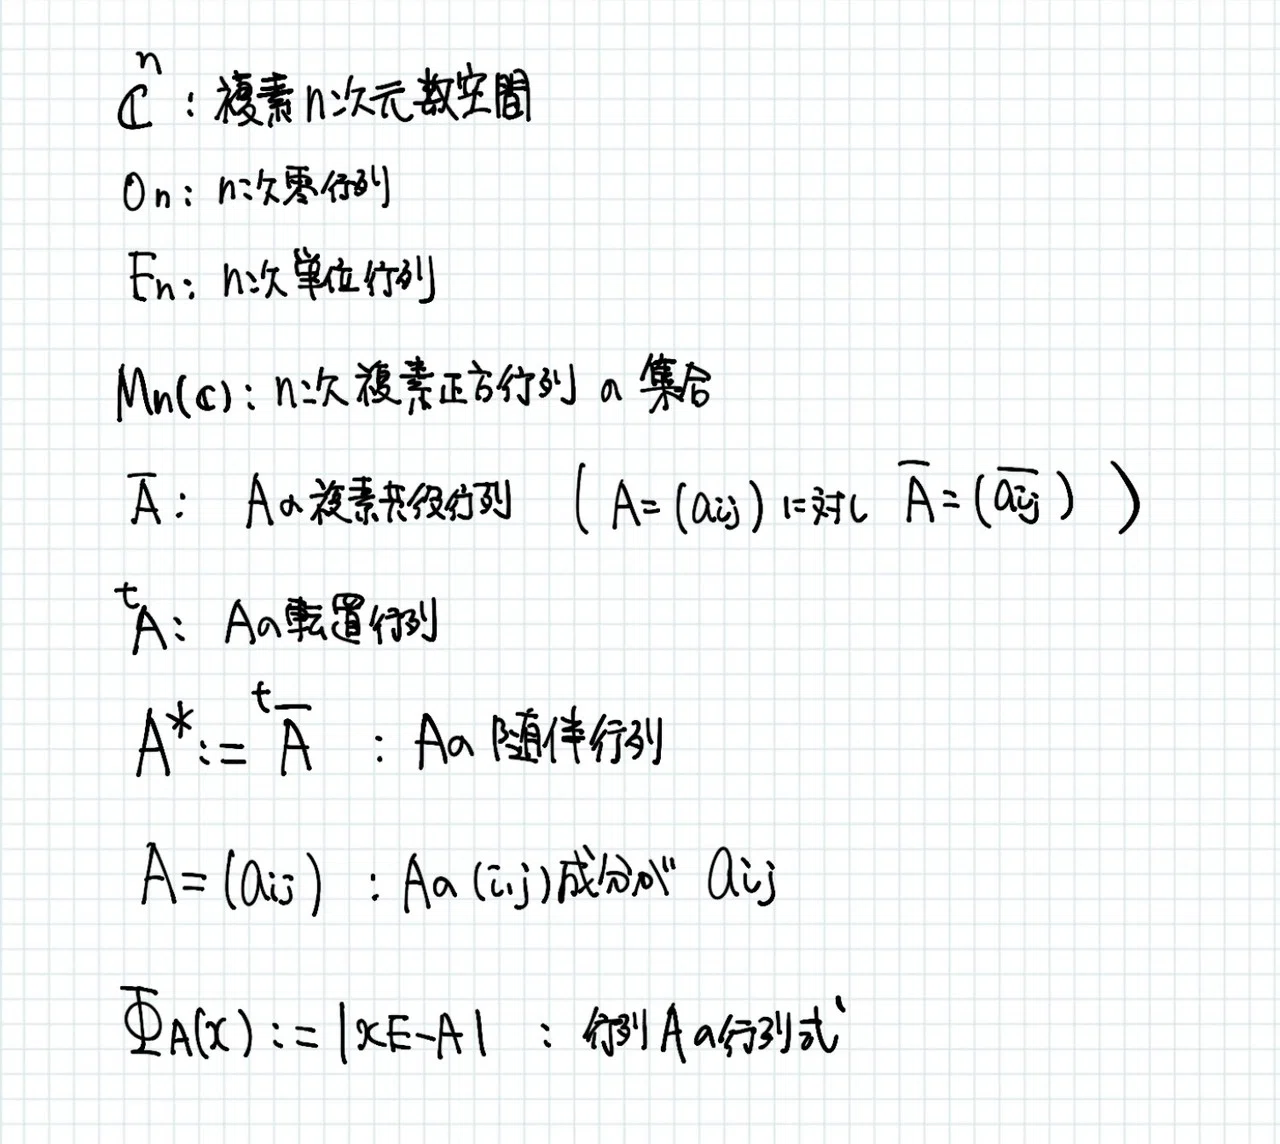 ℂⁿ : 複素n次元数空間
On : n次零行列
En : n次単位行列
Mn(ℂ) : n次複素正方行列の集合
A̅ : Aの複素共役行列 ( A=(aij)に対し A̅=(a̅i̅j̅) )
ᵗA : Aの転置行列
A* := ᵗA̅ : Aの随伴行列
A=(aij) : Aの(i,j)成分が aij
ΦA(x) := |xE-A| : 行列Aの行列式